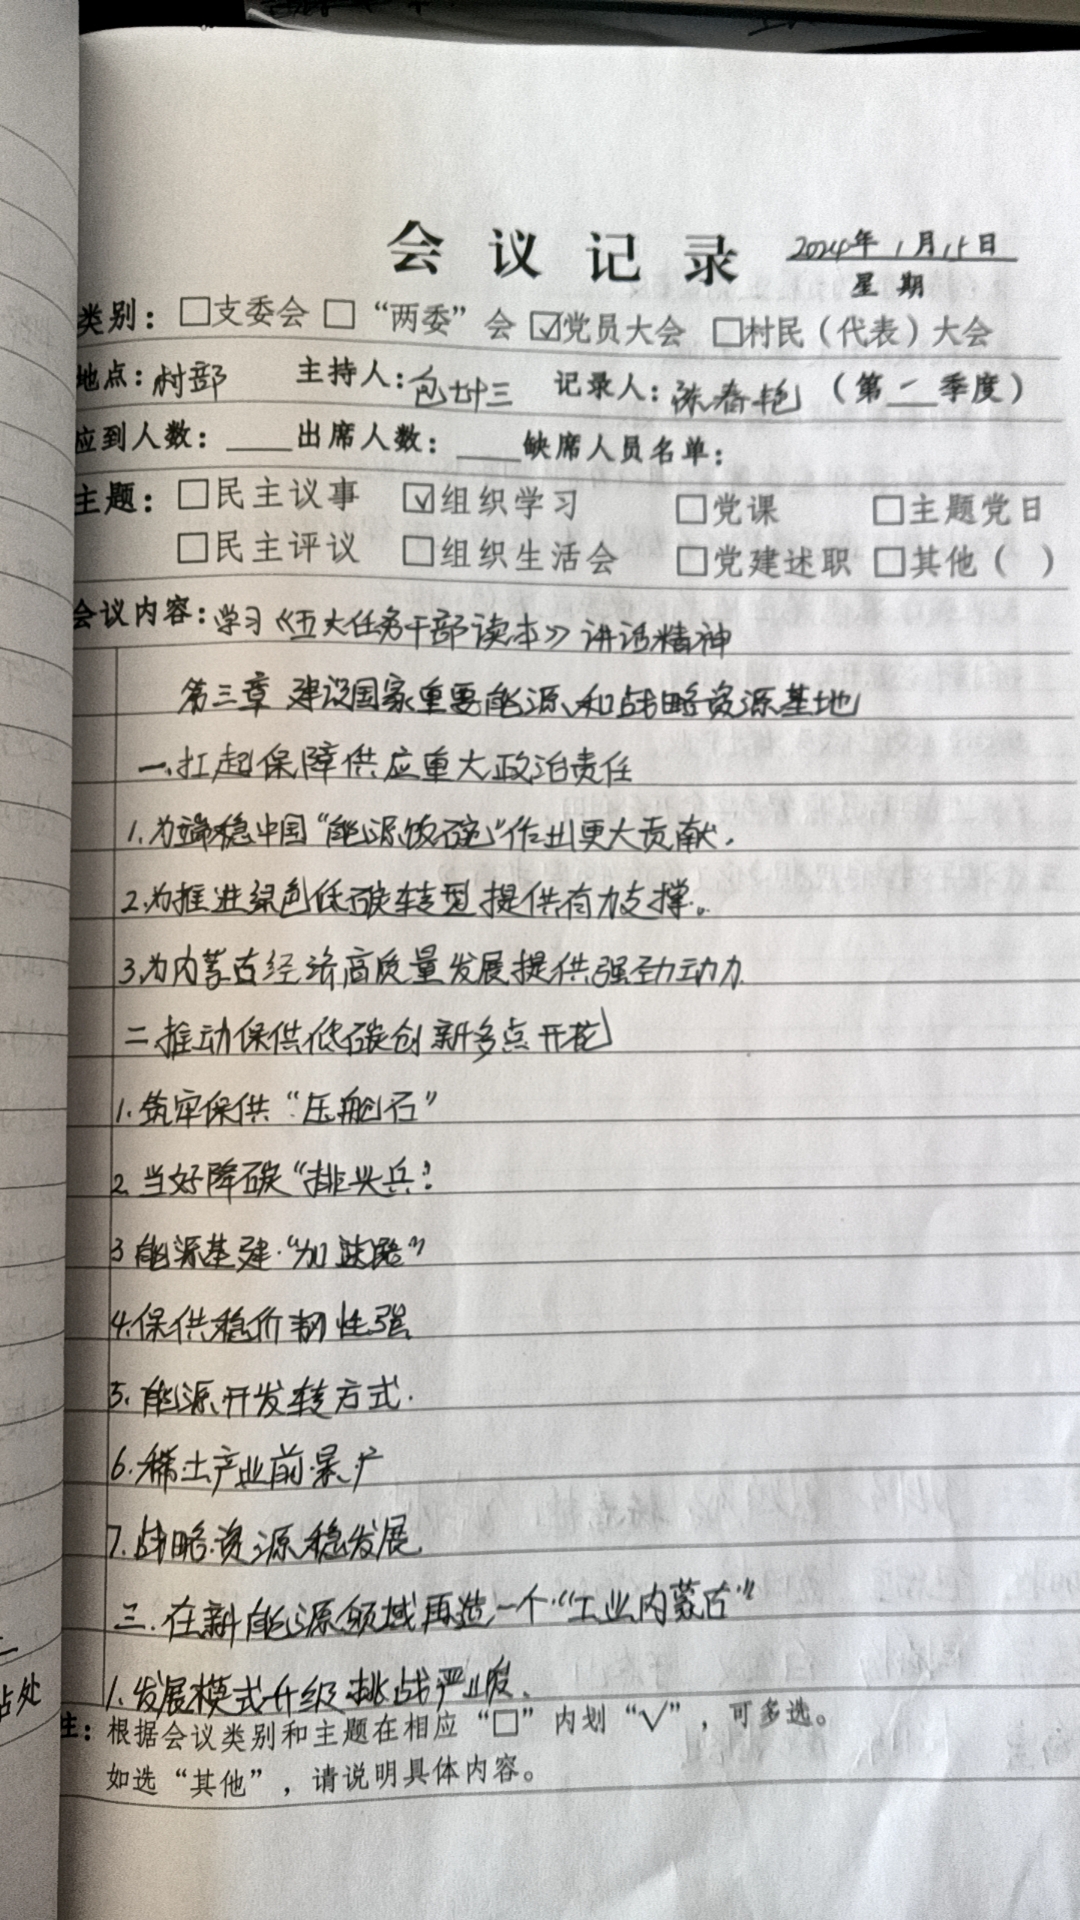 会议记录 2024年1月15日
星期
类别：□支委会 □“两委”会 ☑党员大会 □村民（代表）大会
地点：村部 主持人：包廿三 记录人：陈春艳（第一季度）
应到人数：____出席人数：____缺席人员名单：
主题：□民主议事 ☑组织学习 □党课 □主题党日
□民主评议 □组织生活会 □党建述职 □其他（ ）
会议内容：学习《五大任务干部读本》讲话精神
第三章 建设国家重要能源和战略资源基地
一、扛起保障供应重大政治责任
1.为端稳中国“能源饭碗”作出更大贡献.
2.为推进绿色低碳转型提供有力支撑。
3.为内蒙古经济高质量发展提供强劲动力
二.推动保供低碳创新多点开花
1.筑牢保供“压舱石”
2.当好降碳“排头兵”
3能源基建“加速路”
4.保供稳价韧性强
5.能源开发转方式.
6.稀土产业前景广
7.战略资源稳发展
三.在新能源领域再造一个“工业内蒙古”
1.发展模式升级挑战严峻.
注：根据会议类别和主题在相应“□”内划“√”，可多选。
如选“其他”，请说明具体内容。
占处